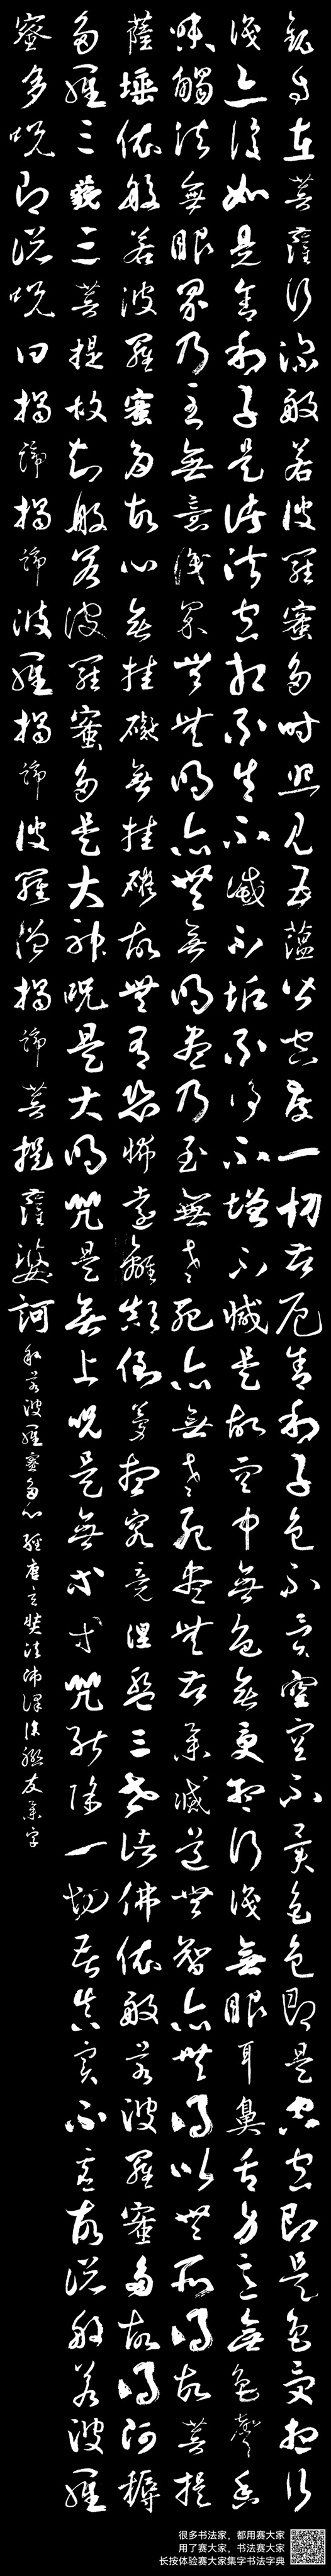 觀自在菩薩行深般若波羅蜜多時照見五蘊皆空度一切苦厄舍利子色不異空空不異色色即是空空即是色受想行
識亦復如是舍利子是諸法空相不生不滅不垢不淨不增不減是故空中無色無受想行識無眼耳鼻舌身意無色聲香
味觸法無眼界乃至無意識界無無明亦無無明盡乃至無老死亦無老死盡無苦集滅道無智亦無得以無所得故菩提
薩埵依般若波羅蜜多故心無挂礙無挂礙故無有恐怖遠離顛倒夢想究竟涅盤三世諸佛依般若波羅蜜多故得阿耨
多羅三藐三菩提故知般若波羅蜜多是大神咒是大明咒是無上咒是無等等咒能除一切苦真實不虛故說般若波羅
蜜多咒即說咒曰揭諦揭諦波羅揭諦波羅僧揭諦菩提薩婆訶
般若波羅蜜多心經唐玄奘法師譯友集字
很多书法家，都用赛大家
用了赛大家，书法赛大家
长按体验赛大家集字书法字典